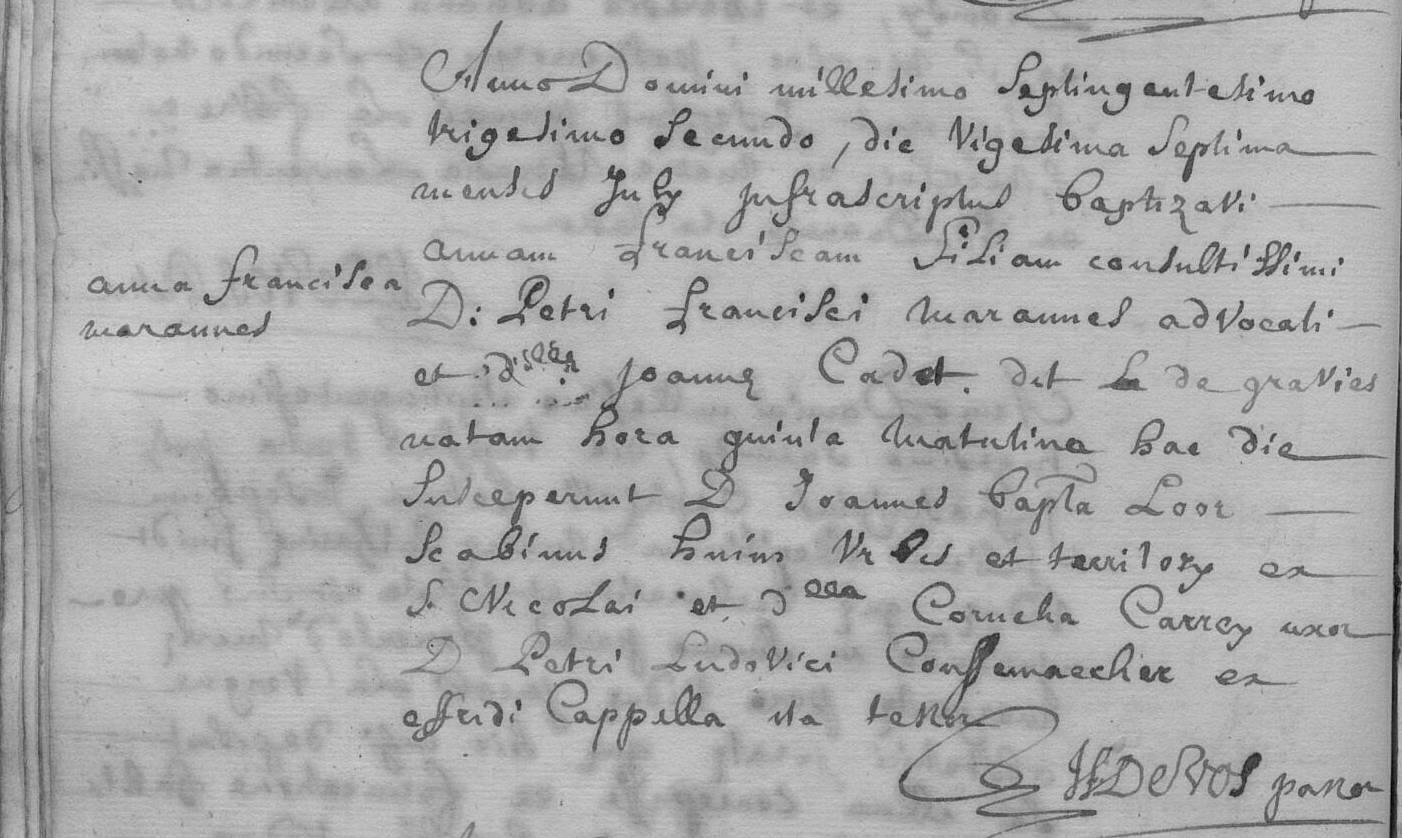 Anno Domini millesimo Septingentesimo
trigesimo secundo, die Vigesima Septima
mensis July jnfrascriptus baptizavi
annam franciscam filiam consultissimi
anna francisca
marannes
D: Petri francisci Marannes advocati
et joannæ Cadet. det de gravies
natam hora quinta matutina hac die
Susceperunt D Joannes bapta Loor
Scabinus huius Urbis et territory ex
S. Nicolai et dlla Cornelia Carrey uxor
D Petri Ludovici Conssemaecker ex
effridi Cappella ita testor
De Vos pastor